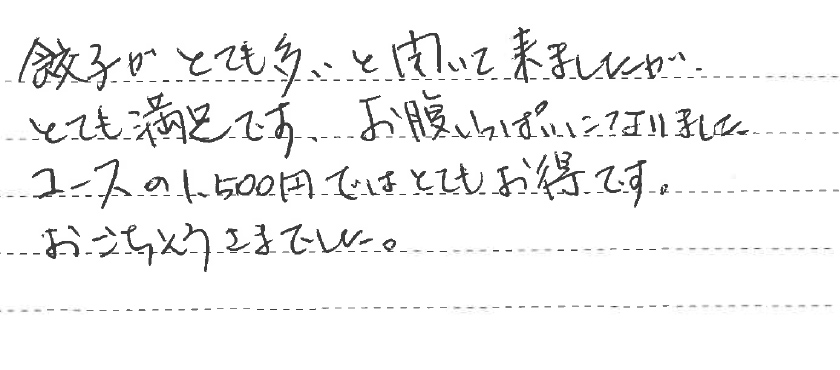 餃子がとても多いと聞いて来ましたが、
とても満足です、お腹いっぱいになりました
コースの1,500円ではとてもお得です。
おごちそうさまでした。